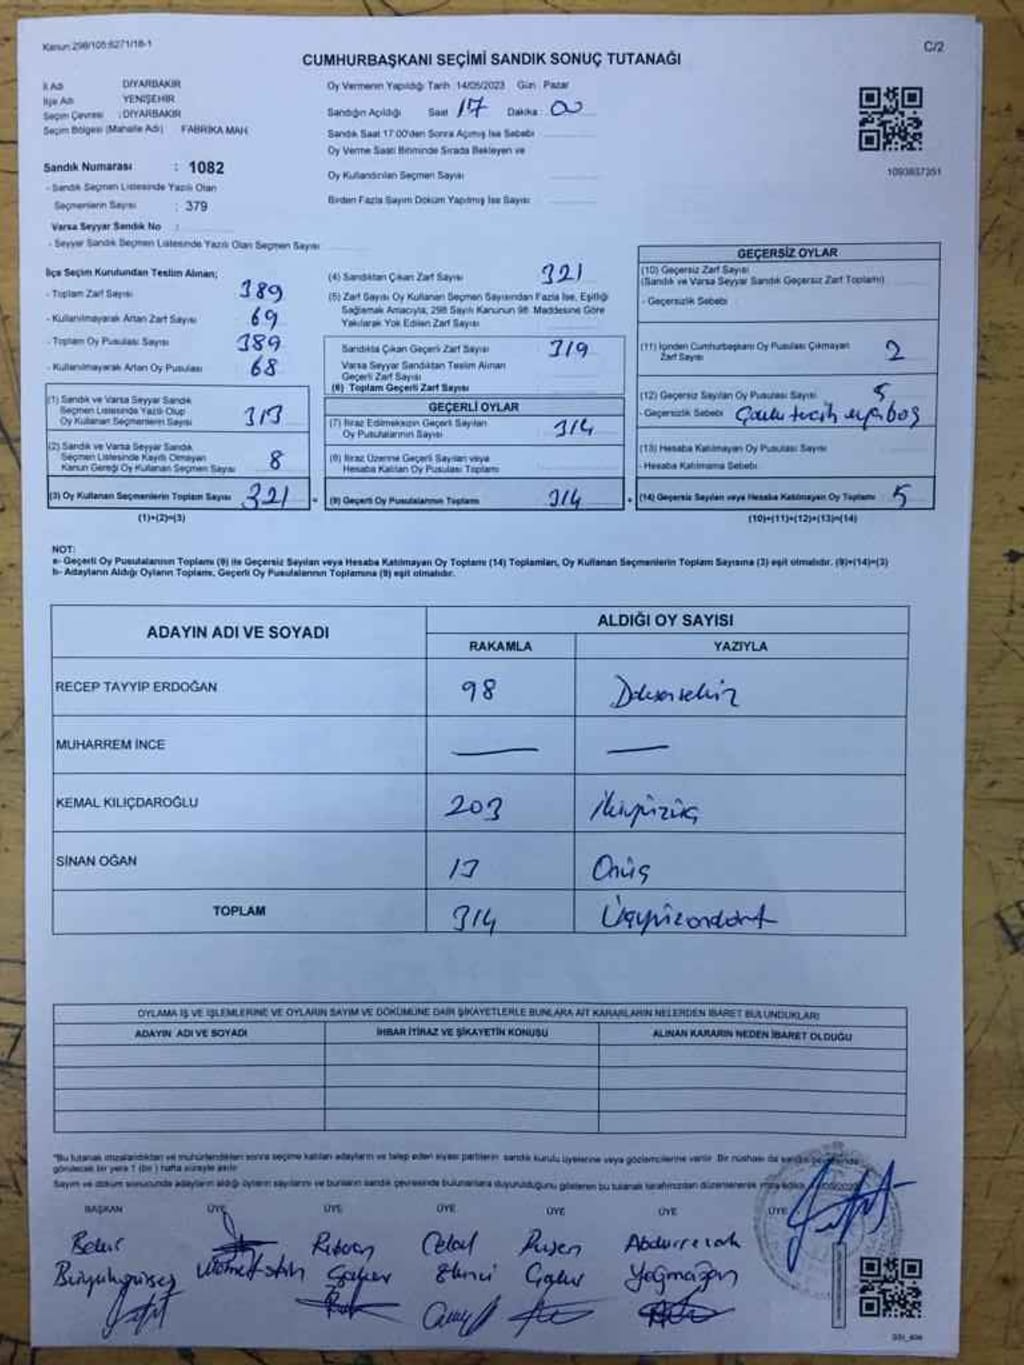 Kanun:298/105:6271/18-1
C/2
CUMHURBAŞKANI SEÇİMİ SANDIK SONUÇ TUTANAĞI
İl Adı DİYARBAKIR
İlçe Adı YENİŞEHİR
Seçim Çevresi : DİYARBAKIR
Seçim Bölgesi (Mahalle Adı) FABRİKA MAH.
Sandık Numarası : 1082
- Sandık Seçmen Listesinde Yazılı Olan
Seçmenlerin Sayısı : 379
Varsa Seyyar Sandık No :
- Seyyar Sandık Seçmen Listesinde Yazılı Olan Seçmen Sayısı
Oy Vermenin Yapıldığı Tarih 14/05/2023 Gün : Pazar
Sandığın Açıldığı Saat 17 Dakika : 00
Sandık Saat 17:00'den Sonra Açılmış İse Sebebi
Oy Verme Saati Bitiminde Sırada Bekleyen ve
Oy Kullandırılan Seçmen Sayısı
Birden Fazla Sayım Döküm Yapılmış İse Sayısı
1093837351
İlçe Seçim Kurulundan Teslim Alınan;
- Toplam Zarf Sayısı 389
- Kullanılmayarak Artan Zarf Sayısı 69
- Toplam Oy Pusulası Sayısı 389
- Kullanılmayarak Artan Oy Pusulası 68
(1) Sandık ve Varsa Seyyar Sandık
Seçmen Listesinde Yazılı Olup
Oy Kullanan Seçmenlerin Sayısı 313
(2) Sandık ve Varsa Seyyar Sandık
Seçmen Listesinde Kayıtlı Olmayan
Kanun Gereği Oy Kullanan Seçmen Sayısı 8
(3) Oy Kullanan Seçmenlerin Toplam Sayısı 321
(1)+(2)=(3)
(4) Sandıktan Çıkan Zarf Sayısı 321
(5) Zarf Sayısı Oy Kullanan Seçmen Sayısından Fazla İse, Eşitliği
Sağlamak Amacıyla; 298 Sayılı Kanunun 98. Maddesine Göre
Yakılarak Yok Edilen Zarf Sayısı
Sandıkta Çıkan Geçerli Zarf Sayısı 319
Varsa Seyyar Sandıktan Teslim Alınan
Geçerli Zarf Sayısı
(6) Toplam Geçerli Zarf Sayısı
GEÇERLİ OYLAR
(7) İtiraz Edilmeksizin Geçerli Sayılan
Oy Pusulalarının Sayısı 314
(8) İtiraz Üzerine Geçerli Sayılan veya
Hesaba Katılan Oy Pusulası Toplamı
(9) Geçerli Oy Pusulalarının Toplamı 314
GEÇERSİZ OYLAR
(10) Geçersiz Zarf Sayısı
(Sandık ve Varsa Seyyar Sandık Geçersiz Zarf Toplamı)
- Geçersizlik Sebebi
(11) İçinden Cumhurbaşkanı Oy Pusulası Çıkmayan
Zarf Sayısı 2
(12) Geçersiz Sayılan Oy Pusulası Sayısı 5
- Geçersizlik Sebebi
(13) Hesaba Katılmayan Oy Pusulası Sayısı
- Hesaba Katılmama Sebebi
(14) Geçersiz Sayılan veya Hesaba Katılmayan Oy Toplamı 5
(10)+(11)+(12)+(13)=(14)
NOT:
a- Geçerli Oy Pusulalarının Toplamı (9) ile Geçersiz Sayılan veya Hesaba Katılmayan Oy Toplamı (14) Toplamları, Oy Kullanan Seçmenlerin Toplam Sayısına (3) eşit olmalıdır. (9)+(14)=(3)
b- Adayların Aldığı Oyların Toplamı, Geçerli Oy Pusulalarının Toplamına (9) eşit olmalıdır.
ADAYIN ADI VE SOYADI ALDIĞI OY SAYISI
RAKAMLA YAZIYLA
RECEP TAYYİP ERDOĞAN 98 Doksansekiz
MUHARREM İNCE — —
KEMAL KILIÇDAROĞLU 203 İkiyüzüç
SİNAN OĞAN 13 Onüç
TOPLAM 314 Üçyüzondört
OYLAMA İŞ VE İŞLEMLERİNE VE OYLARIN SAYIM VE DÖKÜMÜNE DAİR ŞİKAYETLERLE BUNLARA AİT KARARLARIN NELERDEN İBARET BULUNDUKLARI
ADAYIN ADI VE SOYADI İHBAR İTİRAZ VE ŞİKAYETİN KONUSU ALINAN KARARIN NEDEN İBARET OLDUĞU
*Bu tutanak imzalandıktan ve mühürlendikten sonra seçime katılan adayların ve talep eden siyasi partilerin sandık kurulu üyelerine veya gözlemcilerine verilir. Bir nüshası da sandık
görülecek bir yere 1 (bir) hafta süreyle asılır.
Sayım ve döküm sonucunda adayların aldığı oyların sayılarını ve bunların sandık çevresinde bulunanlara duyurulduğunu gösteren bu tutanak tarafımızdan düzenlenerek imza edildi.
BAŞKAN ÜYE ÜYE ÜYE ÜYE ÜYE ÜYE
Celal Abdurrezak